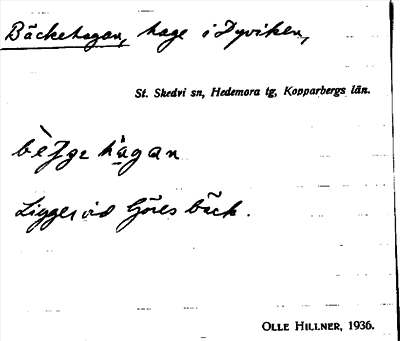 Bäckehagan, hage i Dyviken,
St. Skedvi sn, Hedemora tg, Kopparbergs län.
hàgan
Ligger vid Göres bäck.
OLLE HILLNER, 1936.